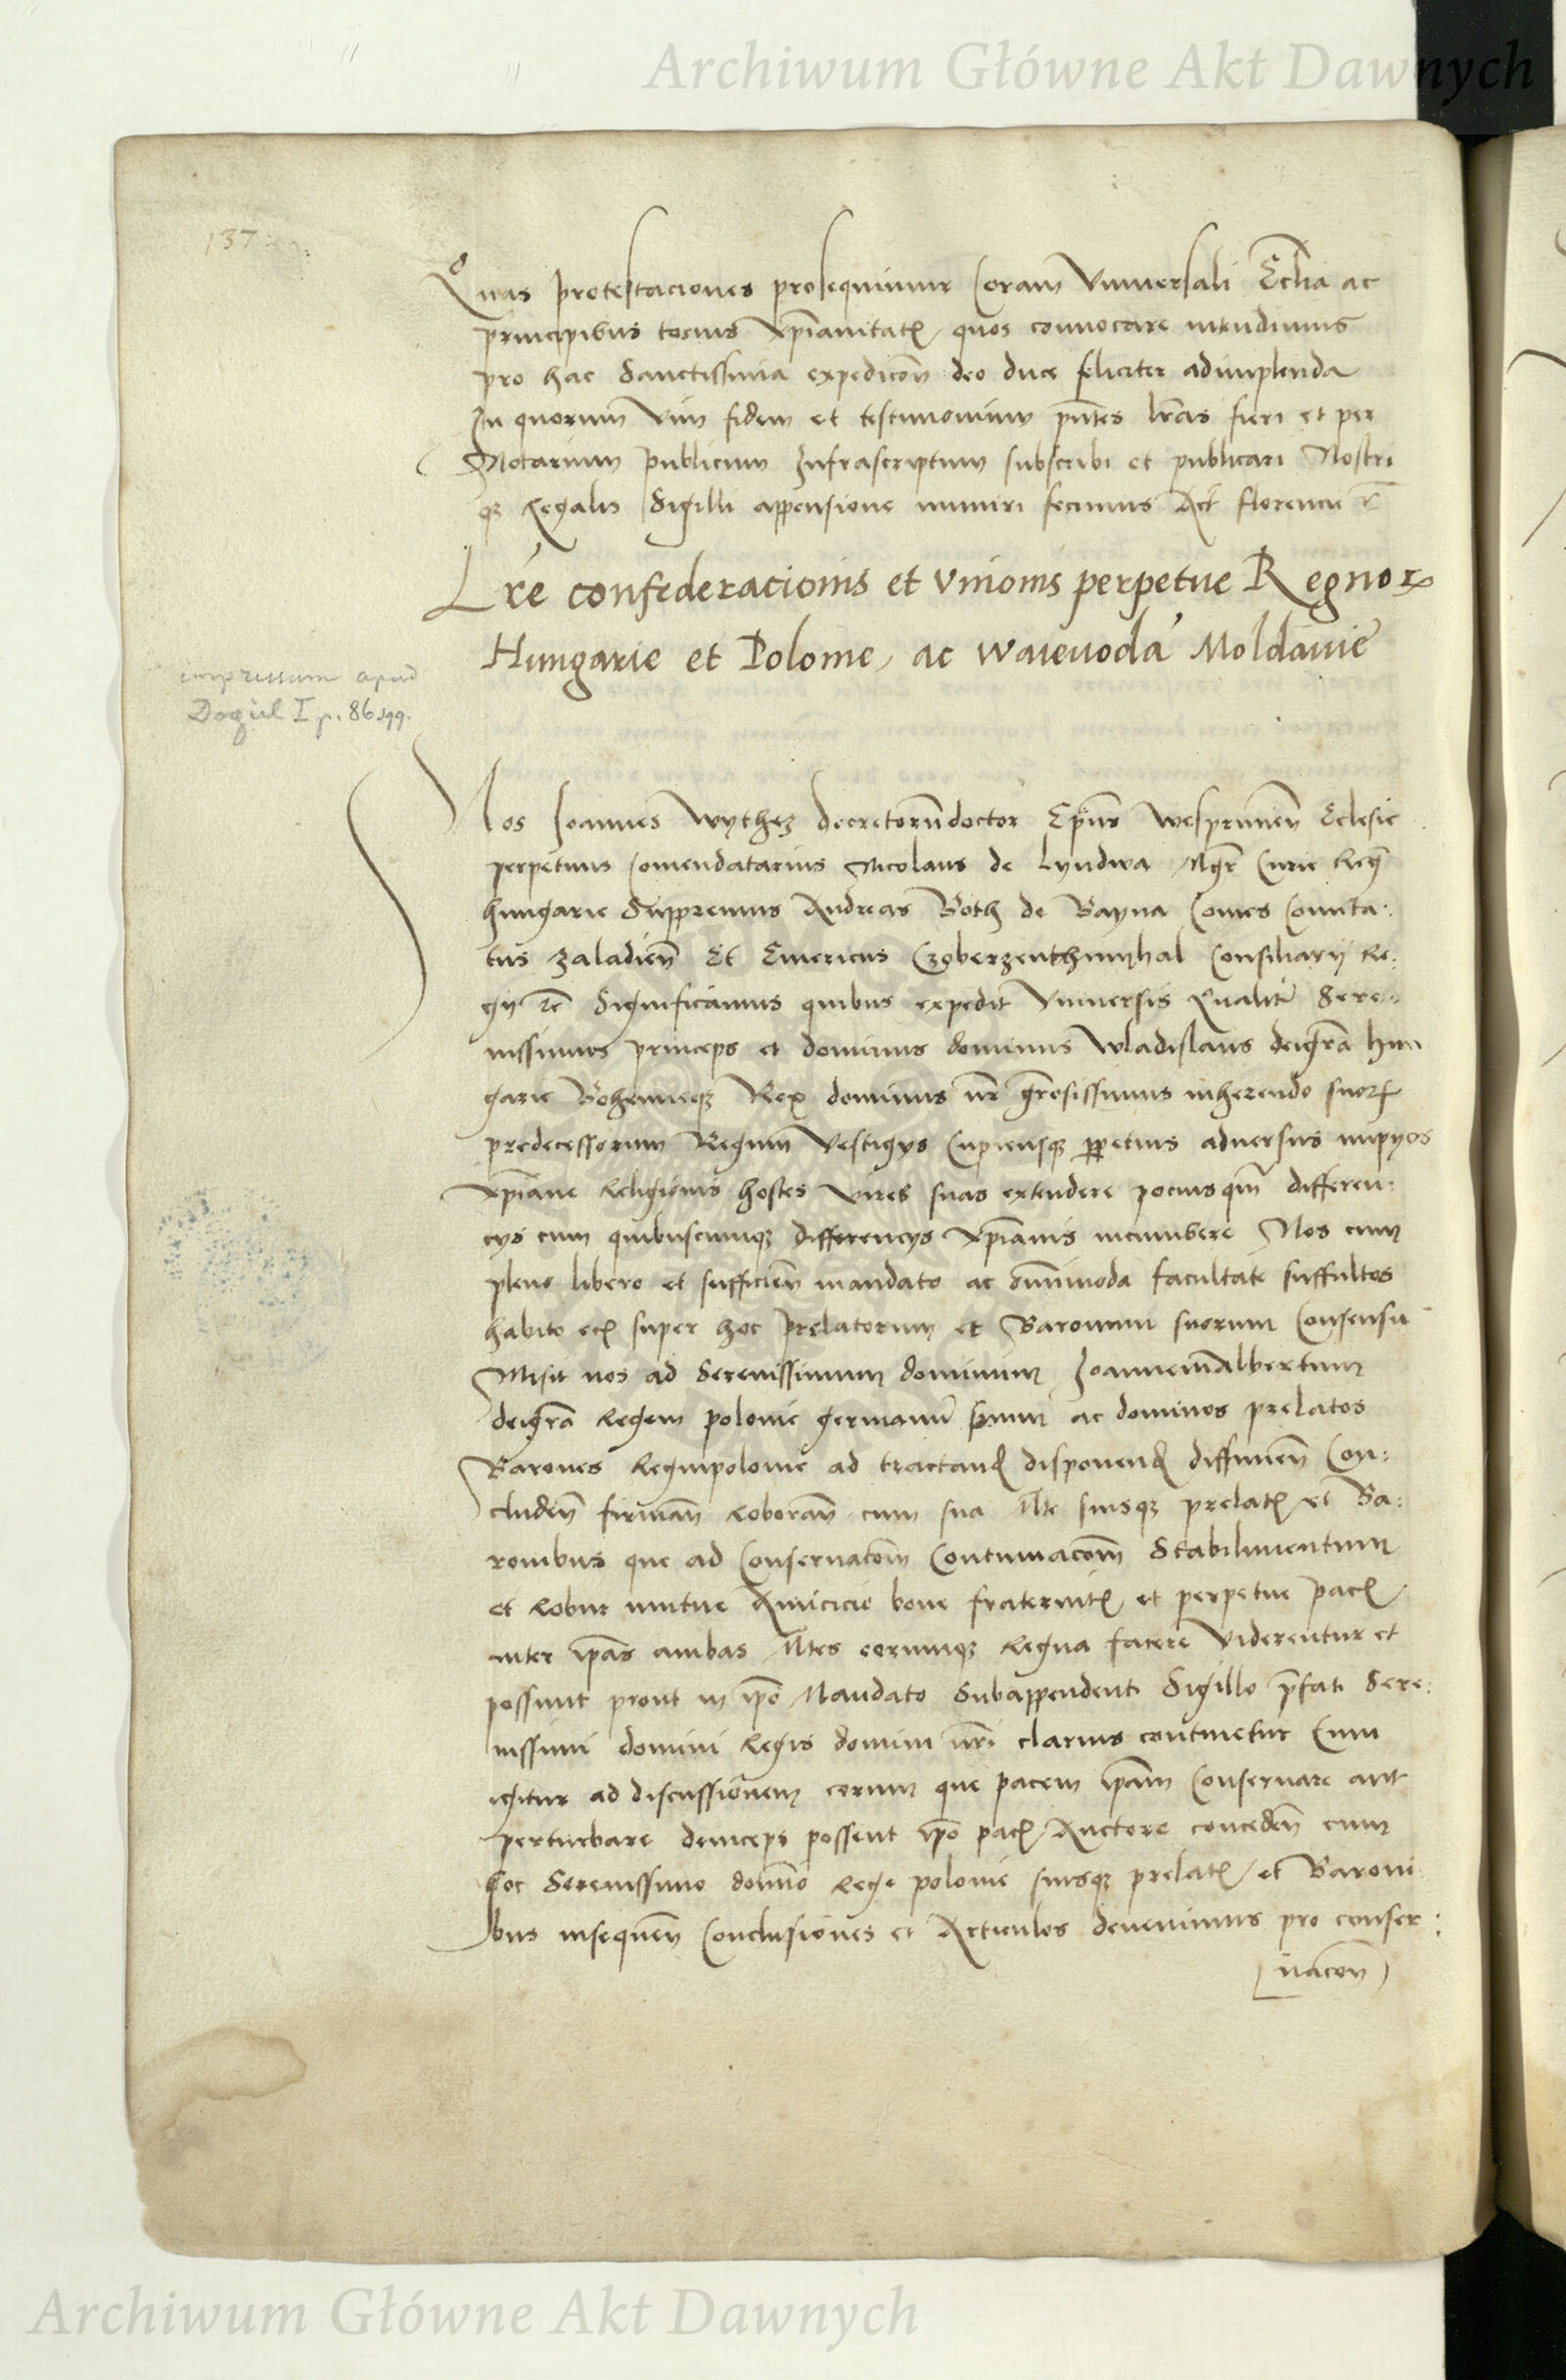 Archiwum Główne Akt Dawnych
137
Quas protestaciones prosequimur Coram Vniuersali Ecclia ac
principibus tocius xpianitatꝭ quos conuocare intendimus
pro hac Sanctissima expedicōn deo duce feliciter adimplenda
In quorum vim fidem et testimonium pn̄tes lr̄as fieri et per
Notarium publicum Infrascriptum subscribi et publicari Nostri
qꝫ Regalis Sigilli appensione muniri fecimus Act florencie
Lr̄e confederacionis et vnionis perpetue Regnoꝝ
Hungarie et Polonie, ac waieuoda Moldauie
impressum apud
Dogiel I p. 86 sqq.
Nos Joannes Wythez decretorum doctor Epūs Wesprimien̄ Eclesie
perpetuus Comendatarius Nicolaus de Lyndwa Mgr̄ Curie Reḡ
hungarie Suppremus Andreas Both de Bayna Comes Comita:
tus zaladien̄ Et Emericus Czoberzenthmihal Consiliarij Re:
gij ꝛc̄ Significamus quibus expedit Vniuersis Qualitr̄ Sere:
nissimus princeps et dominus dominus Wladislaus deigrā hun
garie Bohemieqꝫ Rex dominus nr̄ grōsissimus inherendo suoꝝ
predecessorum Regum Vestigys Cupiensqꝫ ꝑpetuis aduersus impyos
xpiane Religionis hostes vires suas extendere pociusqm̄ differen:
cys cum quibuscumqꝫ differencys xpianis incumbere Nos cum
pleno libero et sufficien̄ mandato ac om̄imoda facultate suffultos
habito ecꝭ super hoc prelatorum et Baronum suorum Consensu
Misit nos ad Serenissimum dominum Joannem Albertum
deigrā Regem polonie germanū suum ac dominos prelatos
Barones Regnipolonie ad tractanꝺ disponenꝺ diffinien̄ Con:
cluden̄ firman̄ Roboran̄ cum sua Mte suisqꝫ prelatꝭ et Ba:
ronibus que ad Conseruacōm Continuacōm Stabilimentum
et Robur mutue Amicicie bone fraternitꝭ et perpetue pacꝭ
inter ipās ambas Mtes eorumqꝫ Regna facere viderentur et
possunt prout in ipō Mandato Subappendenti Sigillo p̄fati Sere:
nissimi domini Regis domini nr̄i clarius continetur Cum
igitur ad discussionem eorum que pacem ipām Conseruare aut
perturbare deinceps possent ipō pacꝭ Auctore conceden̄ cum
hoc Serenissimo domīo Rege polonie suisqꝫ prelatꝭ et Baroni
bus insequen̄ Conclusiones et Articulos deuenimus pro conser:
uacōn
Archiwum Główne Akt Dawnych